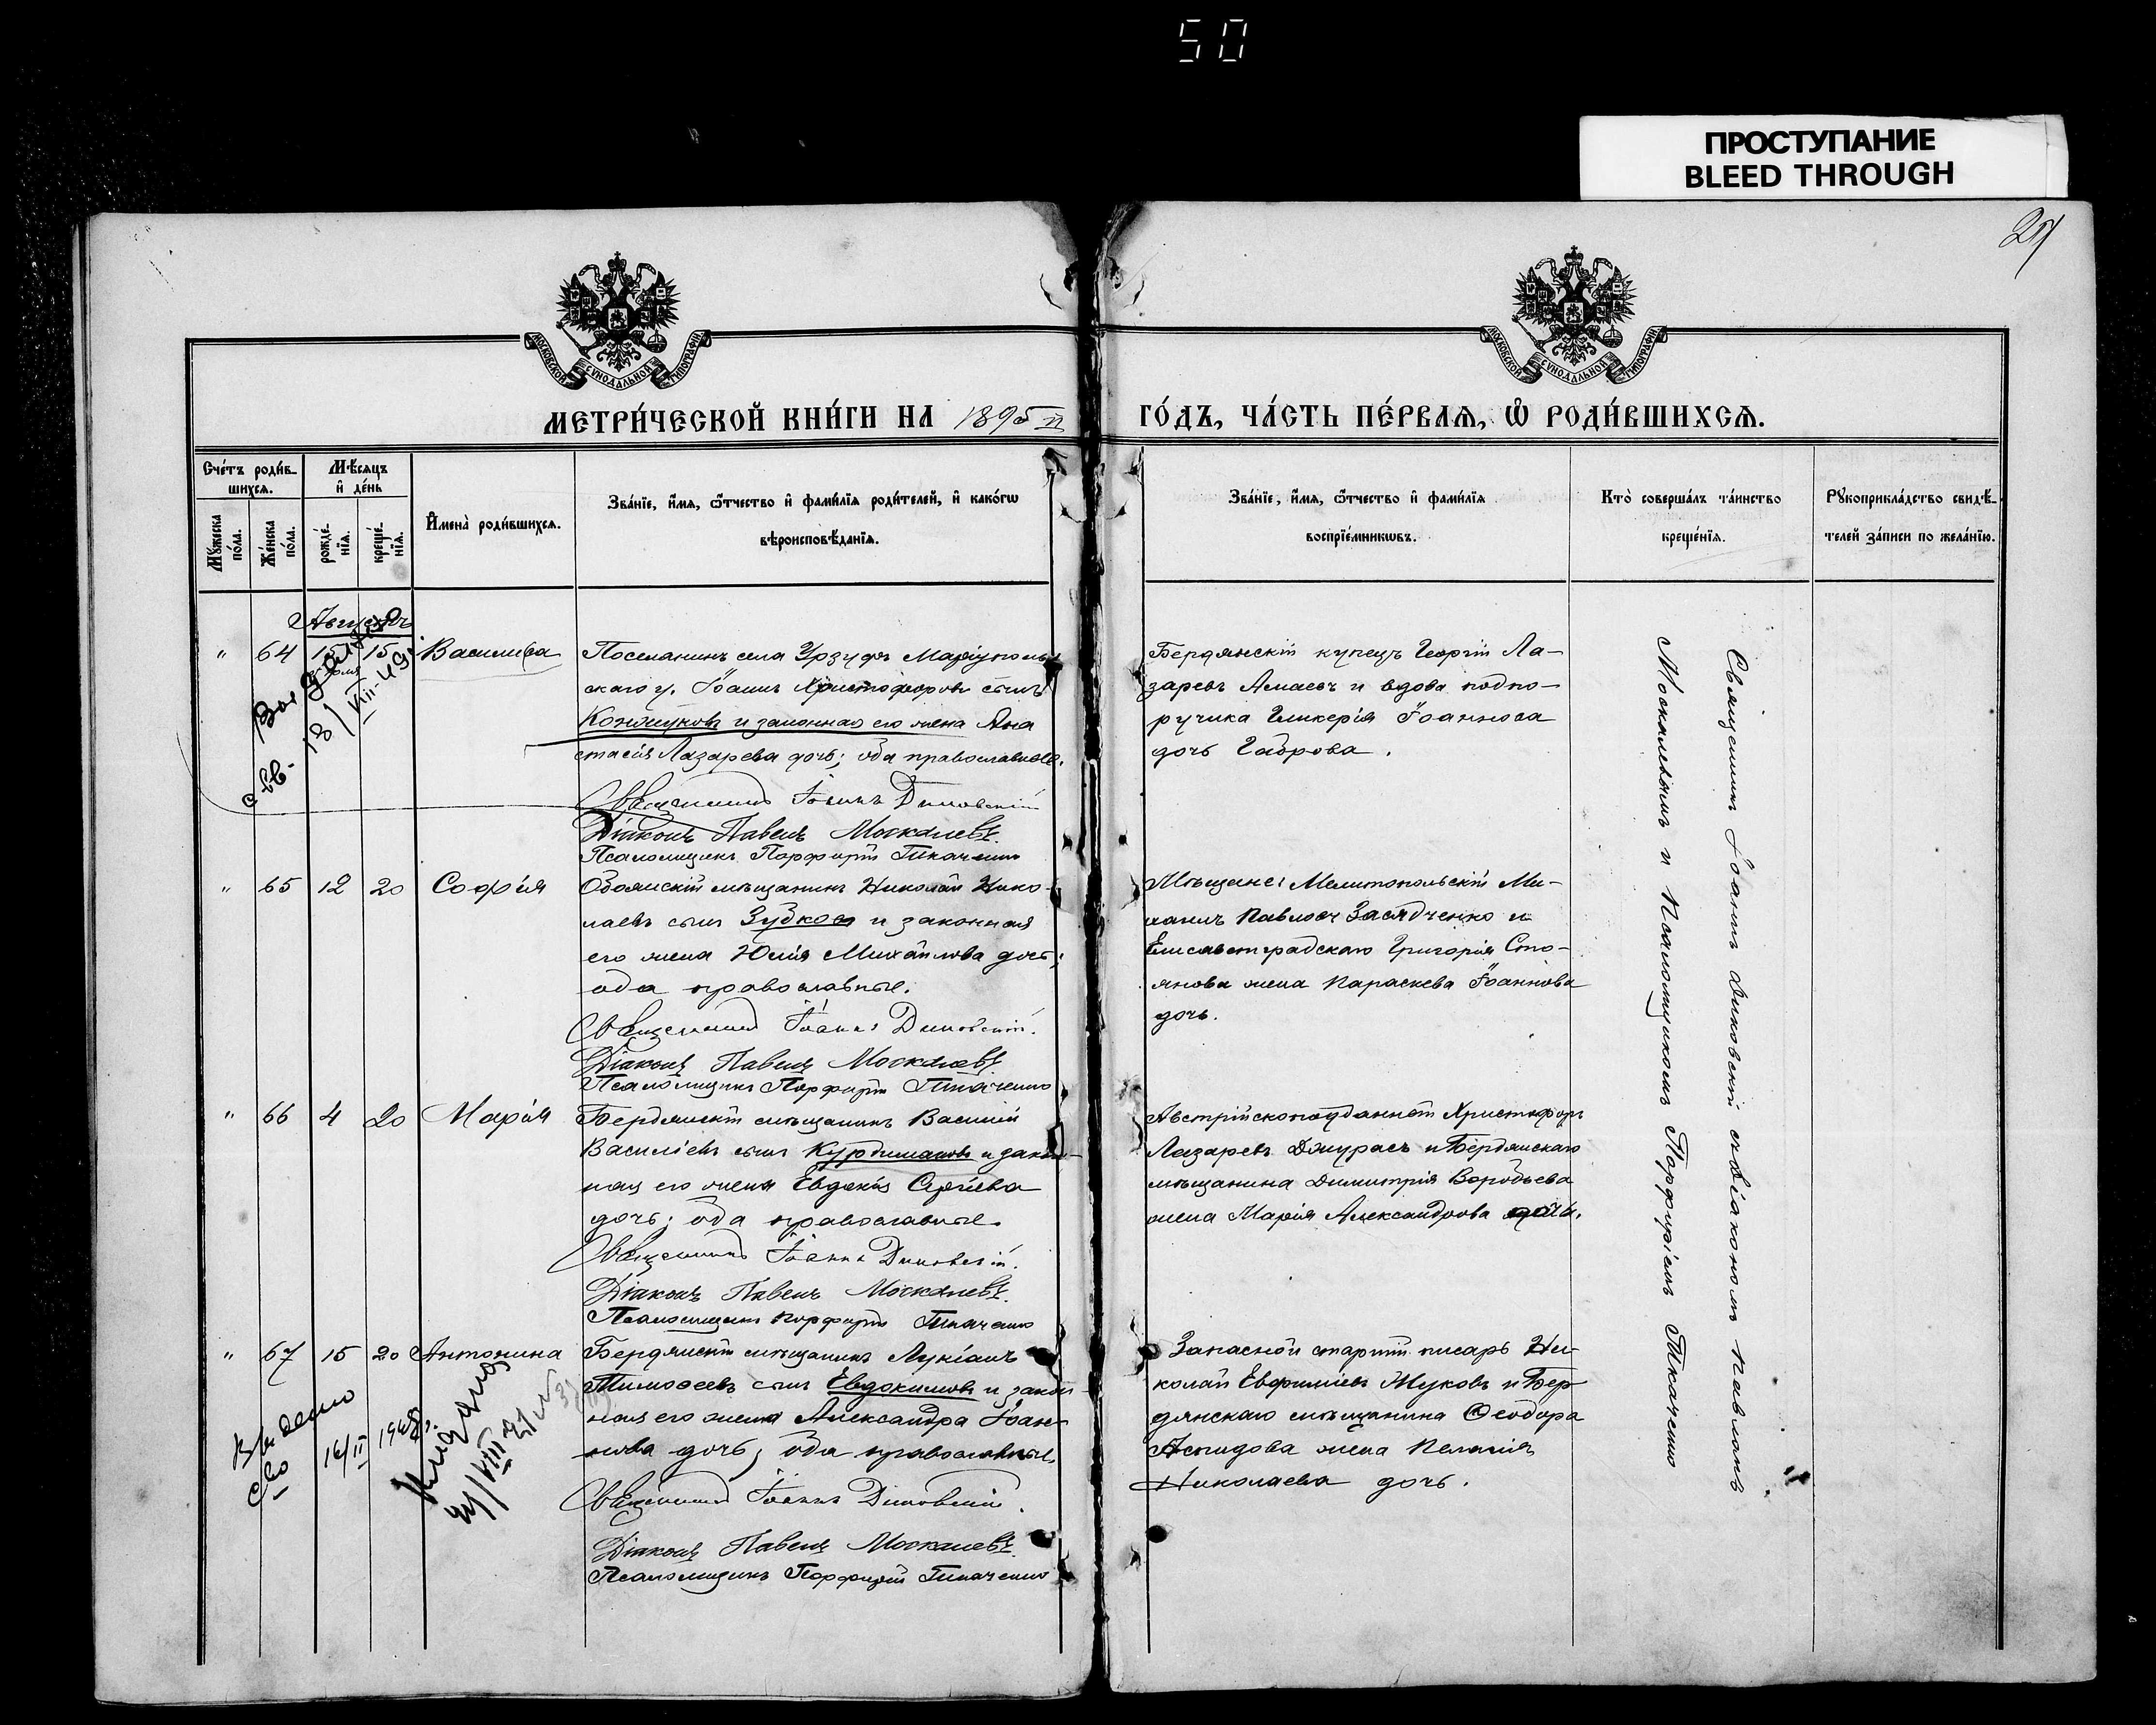 50
ПРОСТУПАНИЕ
BLEED THROUGH
МОСКОВСКОЙ СѴНОДАЛЬНОЙ ТИПОГРАФИИ
МОСКОВСКОЙ СѴНОДАЛЬНОЙ ТИПОГРАФИИ
МЕТРИ́ЧЕСКОЙ КНИ́ГИ НА 1895 й
ГО́ДЪ, ЧА́СТЬ ПЕ́РВАЯ, Ѡ РОДИ́ВШИХСЯ.
Сче́тъ роди́в-
шихся.
Мѣ́сяцъ
и де́нь
Мꙋжеска по́ла.
Же́нска по́ла.
рожде́-нїя.
креще́-нїя.
И҆мена̀ роди́вшихся.
Зва́нїе, и҆́мя, ѻ҆́тчество и҆ фами́лїя роди́телей, и҆ како́гѡ
вѣроисповѣ́данїя.
Зва́нїе, и҆́мя, ѻ҆́тчество и҆ фами́лїя
воспрїе́мникѡвъ.
Кто̀ соверша́лъ та́инство
креще́нїя.
Рꙋкоприкла́дство свидѣ́-
телей за́писи по жела́нїю.
Августъ
" 64 15 15 Василиса
Поселянинъ села Урзуфъ Маріуполь-
скаго у. Іоаннъ Христофоровъ сынъ
и законная его жена Ана
стасія Лазарева дочь; оба православные.
Священникъ Іоаннъ Диковскій
Діаконъ Павелъ Москалевъ.
Псаломщикъ Порфирій Ткаченко
Бердянскій купецъ Георгій Ла-
заревъ и вдова подпо-
ручика Гликерія Іоаннова
дочь Габрова.
Св. 18/VIII-49
" 65 12 20 Софія
Обоянскій мѣщанинъ Николай Нико-
лаевъ сынъ Зубковъ и законная
его жена Юлія Михайлова дочь;
оба православные.
Священникъ Іоаннъ Диковскій.
Діаконъ Павелъ Москалевъ
Псаломщикъ Порфирій Ткаченко
Мѣщане: Мелитопольскій Ми-
хаилъ Павловъ Засядченко и
Елисаветградскаго Григорія Сто-
янова жена Параскева Іоаннова
дочь.
" 66 4 20 Марія
Бердянскій мѣщанинъ Василій
Васильевъ сынъ Курдимановъ и закон-
ная его жена Евдокія Сергіева
дочь; оба православные.
Священникъ Іоаннъ Диковскій.
Діаконъ Павелъ Москалевъ.
Псаломщикъ Порфирій Ткаченко
Австрійскоподданный Христофоръ
Лазаревъ Джурасъ и Бердянскаго
мѣщанина Димитрія Воробьева
жена Марія Александрова дочь.
" 67 15 20 Антонина
Бердянскій мѣщанинъ Лукіанъ
Тимоѳеевъ сынъ Евдокимовъ и закон
ная его жена Александра Іоан-
нова дочь; оба православные.
Священникъ Іоаннъ Диковскій.
Діаконъ Павелъ Москалевъ.
Псаломщикъ Порфирій Ткаченко
Запасной старшій писарь Ни-
колай Евфиміевъ Жуковъ и Бер
дянскаго мѣщанина Ѳеодора
Аспидова жена Пелагія
Николаева дочь.
Выдано
16/II
Священникъ Іоаннъ Диковскій съ Діакономъ Павломъ
Москалевымъ и Псаломщикомъ Порфиріемъ Ткаченко